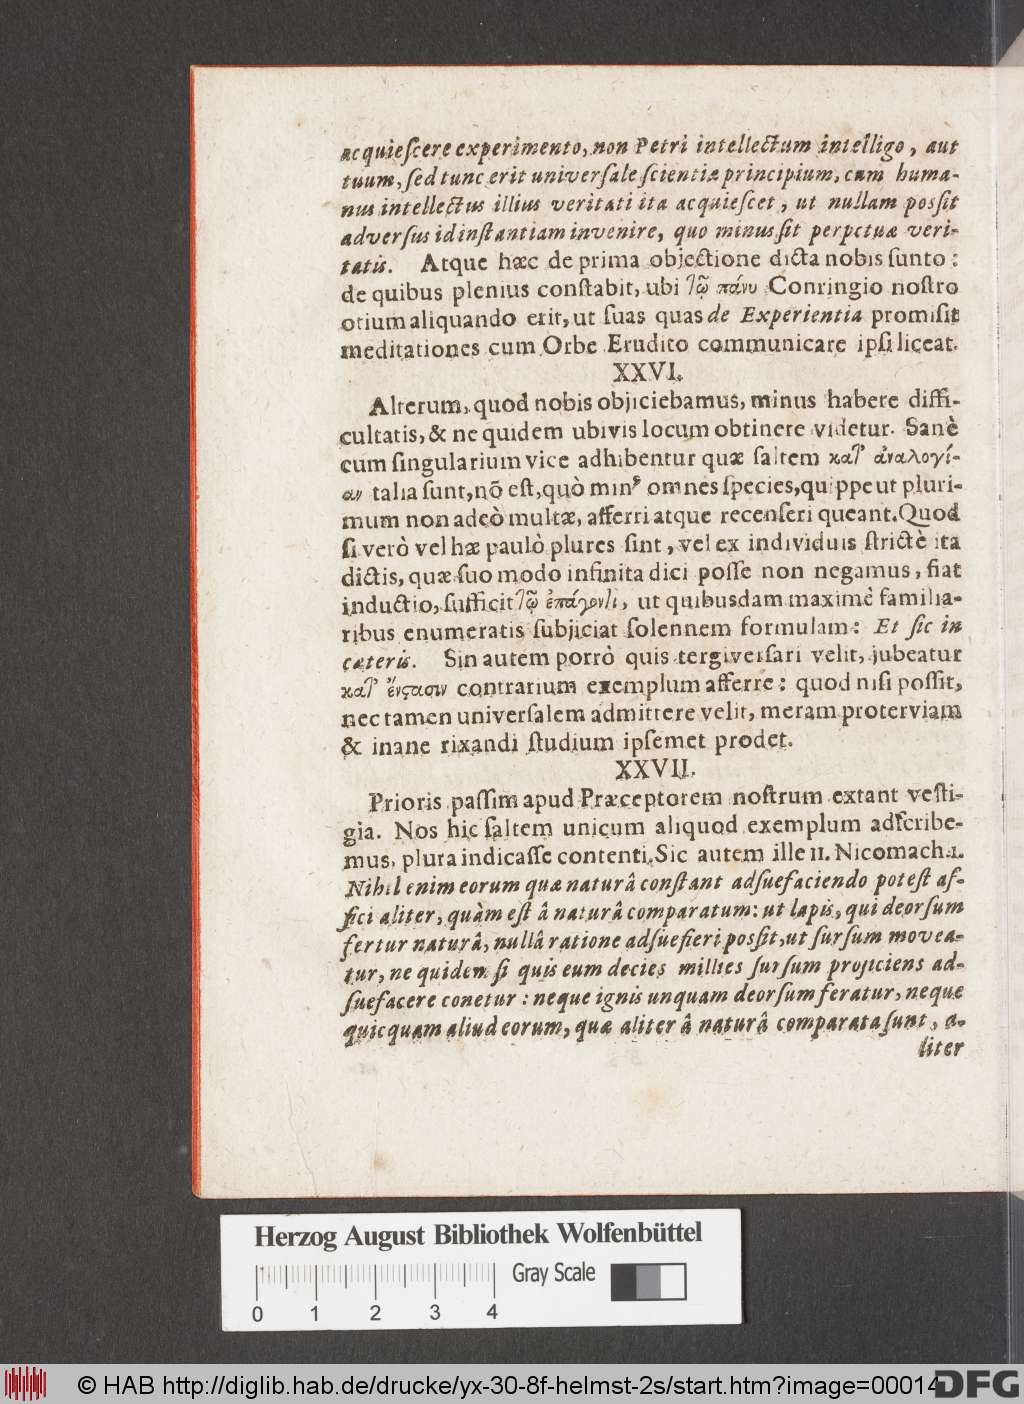 acquieſcere experimento, non Petri intellectum intelligo, aut
tuum, ſed tunc erit univerſale ſcientiæ principium, cum huma-
nus intellectus illius veritati ita acquieſcet, ut nullam poſſit
adverſus id inſtantiam invenire, quo minus ſit perpetuæ veri-
tatis. Atque hæc de prima objectione dicta nobis ſunto:
de quibus plenius conſtabit, ubi τῷ πάνυ Conringio noſtro
otium aliquando erit, ut ſuas quas de Experientia promiſit
meditationes cum Orbe Erudito communicare ipſi liceat.
XXVI.
Alterum, quod nobis objiciebamus, minus habere diffi-
cultatis, & ne quidem ubivis locum obtinere videtur. Sanè
cum ſingularium vice adhibentur quæ ſaltem κατ' ἀναλογί-
αν talia ſunt, nõ eſt, quò minꝰ omnes ſpecies, quippe ut pluri-
mum non adeò multæ, afferri atque recenſeri queant. Quod
ſi verò vel hæ paulò plures ſint, vel ex individuis ſtrictè ita
dictis, quæ ſuo modo infinita dici poſſe non negamus, fiat
inductio, ſufficit τῷ ἐπάγοντι, ut quibusdam maximè familia-
ribus enumeratis ſubjiciat ſolennem formulam: Et ſic in
cæteris. Sin autem porrò quis tergiverſari velit, jubeatur
κατ' ἔνςασιν contrarium exemplum afferre: quod niſi poſſit,
nec tamen univerſalem admittere velit, meram proterviam
& inane rixandi ſtudium ipſemet prodet.
XXVII.
Prioris paſſim apud Præceptorem noſtrum extant veſti-
gia. Nos hic ſaltem unicum aliquod exemplum adſcribe-
mus, plura indicaſſe contenti. Sic autem ille II. Nicomach. 1.
Nihil enim eorum quæ naturâ conſtant adſuefaciendo poteſt af-
fici aliter, quàm eſt â naturâ comparatum: ut lapis, qui deorſum
fertur naturâ, nullâ ratione adſuefieri poſſit, ut ſurſum movea-
tur, ne quidem ſi quis eum decies millies ſurſum projiciens ad-
ſuefacere conetur: neque ignis unquam deorſum feratur, neque
quicquam aliud eorum, quæ aliter â naturâ comparata ſunt, a-
liter
Herzog August Bibliothek Wolfenbüttel
Gray Scale
0 1 2 3 4
© HAB http://diglib.hab.de/drucke/yx-30-8f-helmst-2s/start.htm?image=00014
DFG